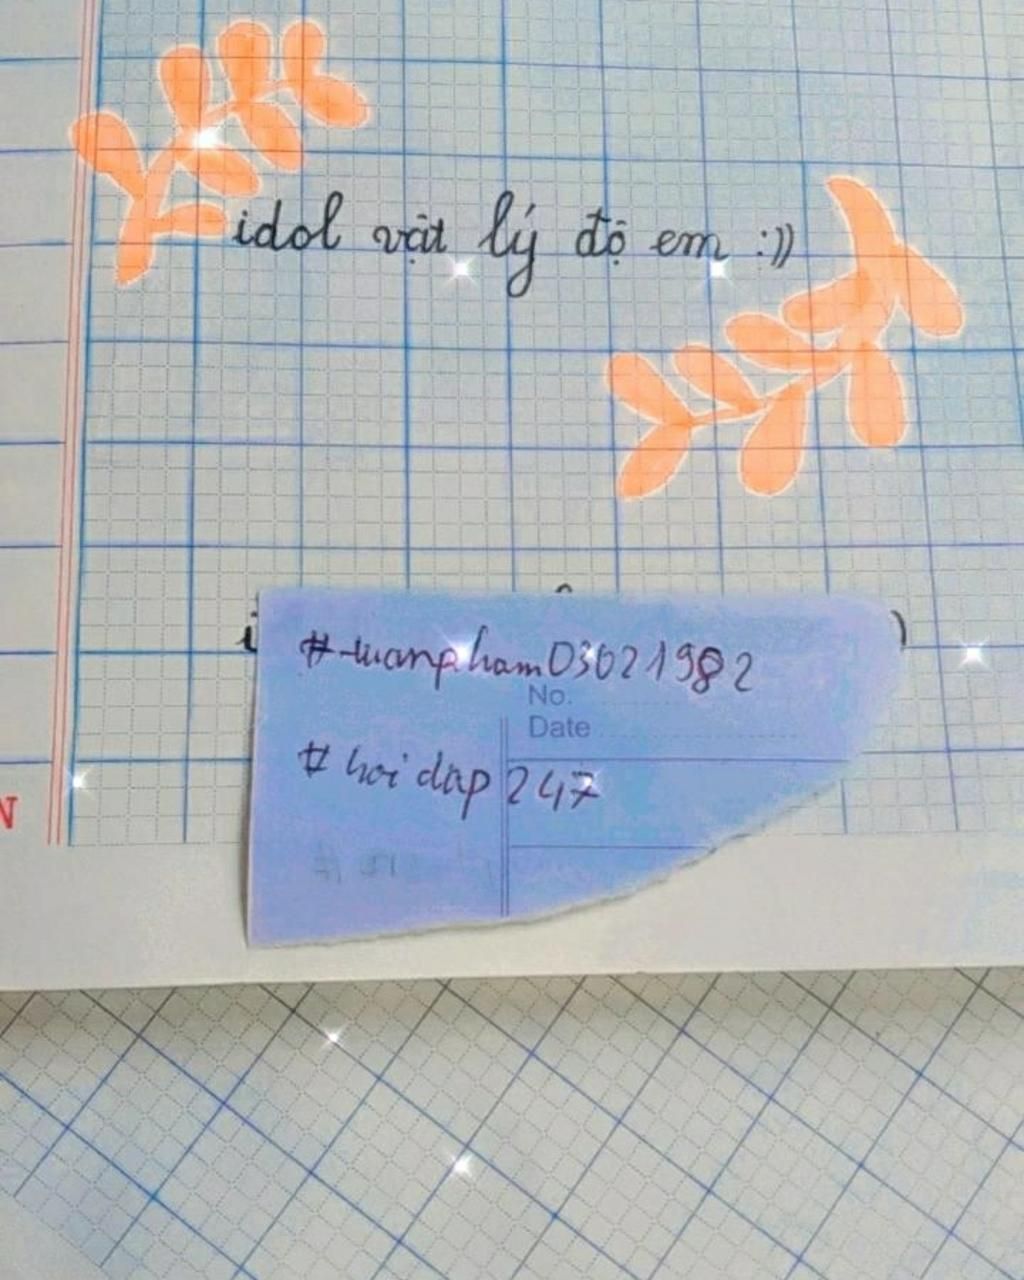 idol vật lý độ em :))
#tuanpham03021982
No.
Date
#hoidap247
N